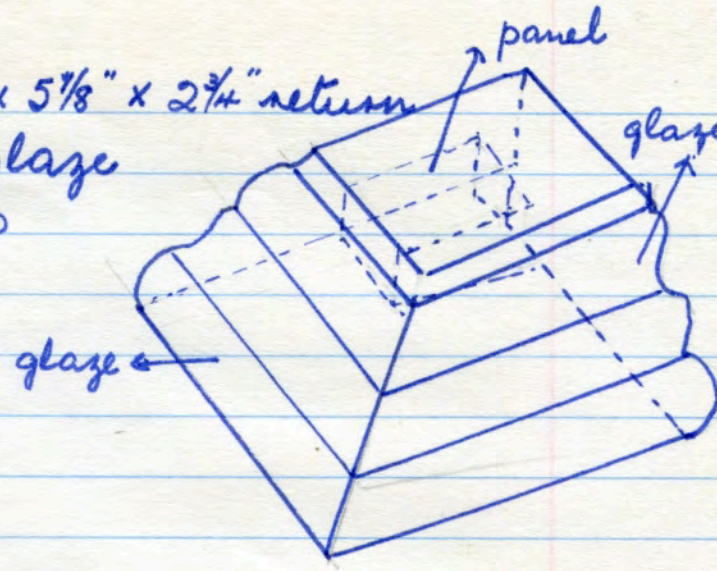 panel
x 5⅞" x 2¾" return
glaze
glaze
glaze